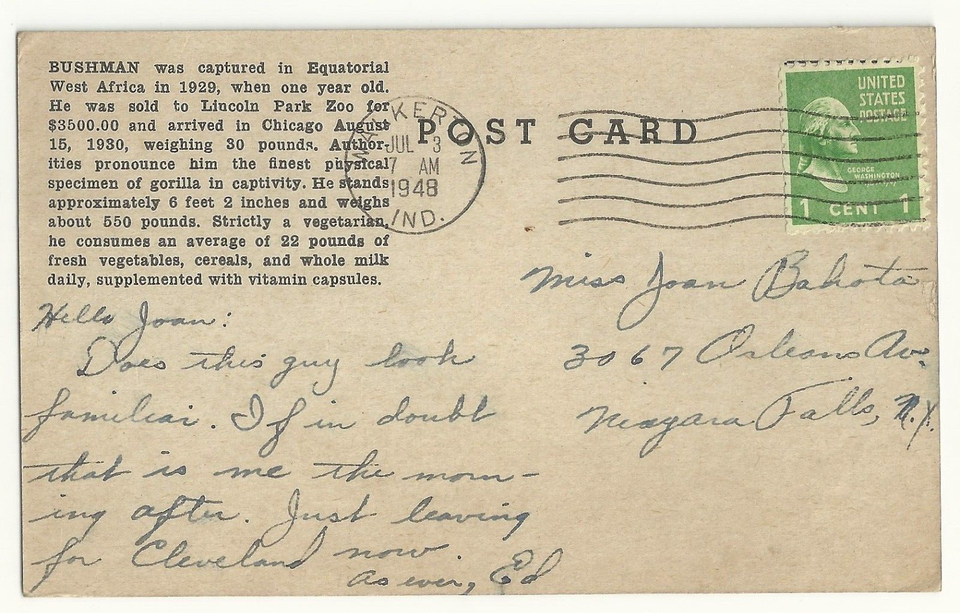 BUSHMAN was captured in Equatorial
West Africa in 1929, when one year old.
He was sold to Lincoln Park Zoo for
$3500.00 and arrived in Chicago August
15, 1930, weighing 30 pounds. Author-
ities pronounce him the finest physical
specimen of gorilla in captivity. He stands
approximately 6 feet 2 inches and weighs
about 550 pounds. Strictly a vegetarian,
he consumes an average of 22 pounds of
fresh vegetables, cereals, and whole milk
daily, supplemented with vitamin capsules.
POST CARD
WALKERTON
JUL 3
7 AM
1948
IND.
UNITED
STATES
POSTAGE
GEORGE
WASHINGTON
1 CENT 1
Miss Joan Bakota
3067 Orleans Ave.
Niagara Falls, N.Y.
Hello Joan:
Does this guy look
familiar. If in doubt
that is me the morn-
ing after. Just leaving
for Cleveland now.
as ever, Ed